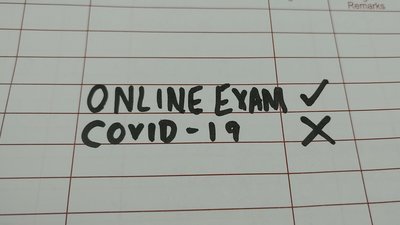 Remarks
ONLINE EXAM ✓
COVID-19 X